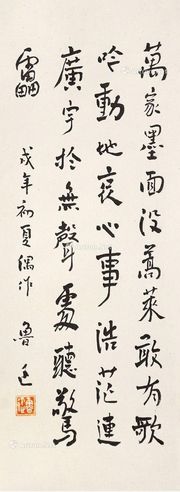 萬家墨面没蒿萊敢有歌
吟動地哀心事浩茫連
廣宇於無聲處聽驚
靁
戌年初夏偶作 魯迅